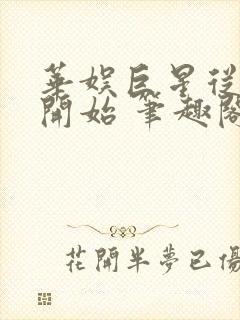 華娛巨星從
開始 筆趣閣
花開半夢已傷